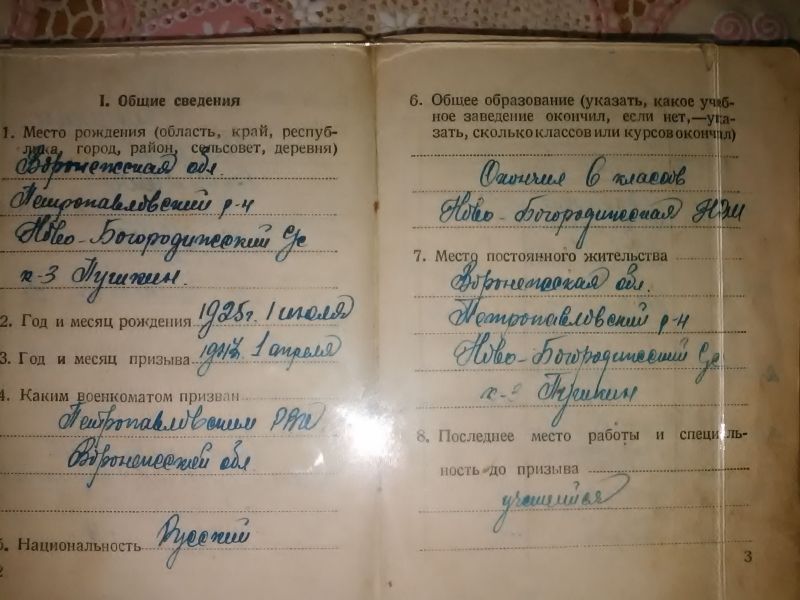 I. Общие сведения
1. Место рождения (область, край, респуб-
лика, город, район, сельсовет, деревня)
Воронежская обл.
Петропавловский р-н
Ново-Богородицкий с/с
к-з Пушкин.
2. Год и месяц рождения 1925г. 1 июля
3. Год и месяц призыва 1 апреля
4. Каким военкоматом призван
Петропавловским РВК
Воронежской обл
5. Национальность Русский
2
6. Общее образование (указать, какое учеб-
ное заведение окончил, если нет,—ука-
зать, сколько классов или курсов окончил)
Окончил 6 класов
Ново-Богородицкая
7. Место постоянного жительства
Воронежская обл.
Петропавловский р-н
Ново-Богородицкий с/с
к-з Пушкин
8. Последнее место работы и специаль-
ность до призыва
учащийся
3